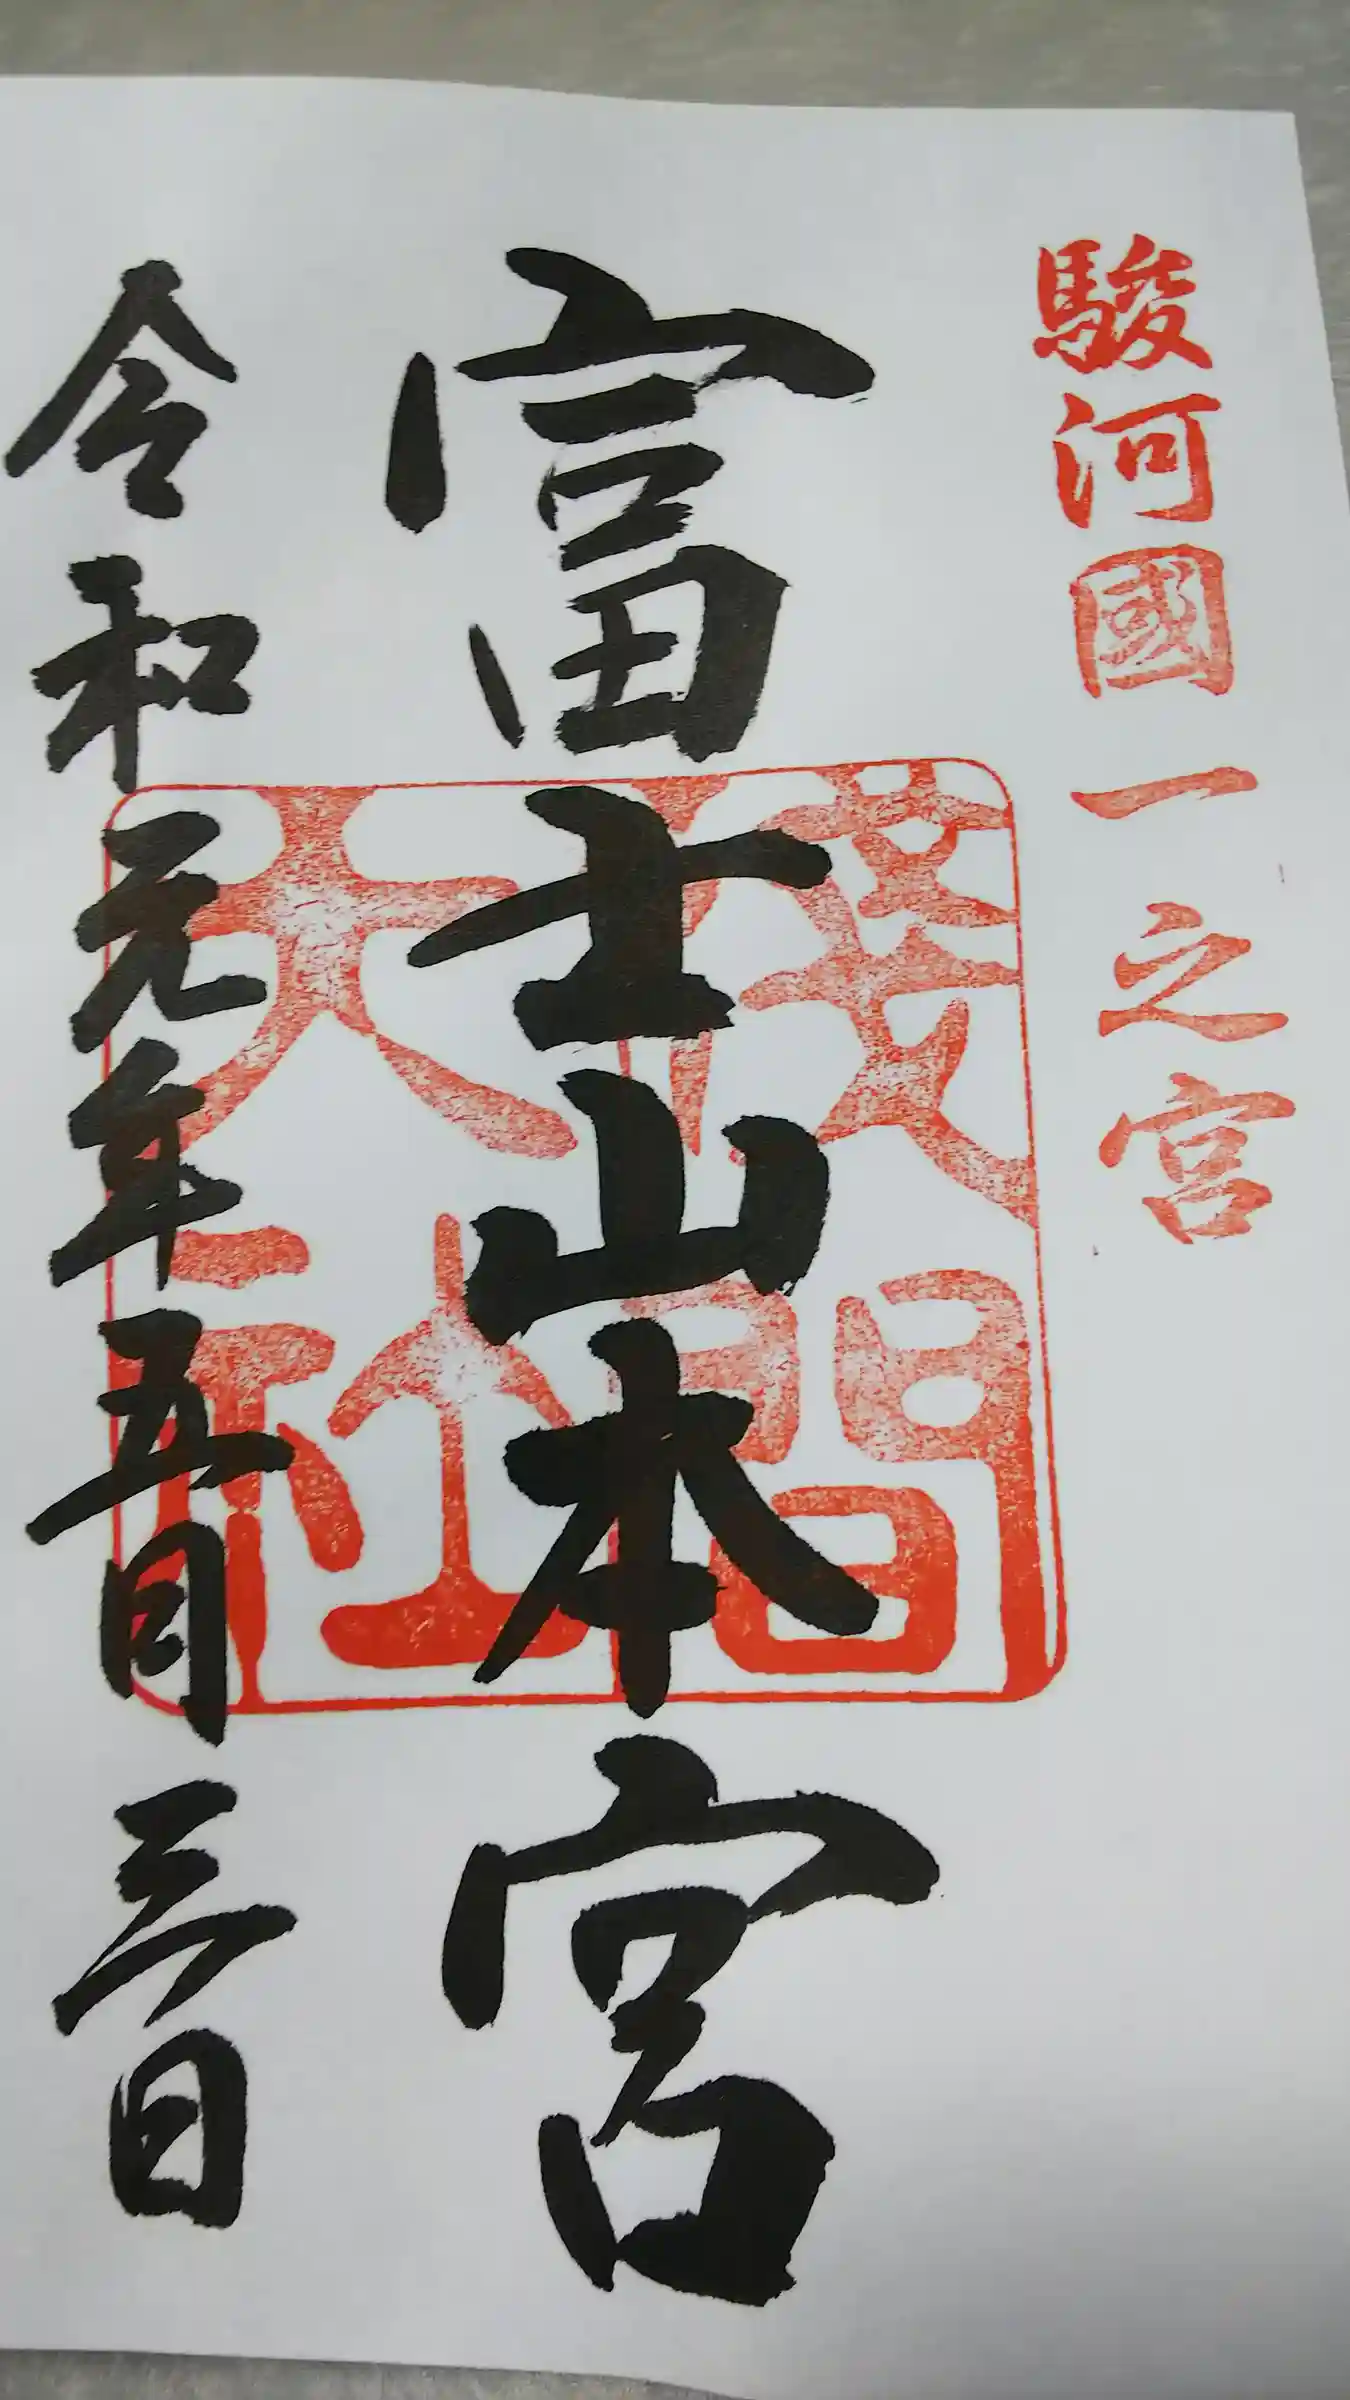 駿河國一之宮
富士山本宮
淺間大社
令和元年五月三日